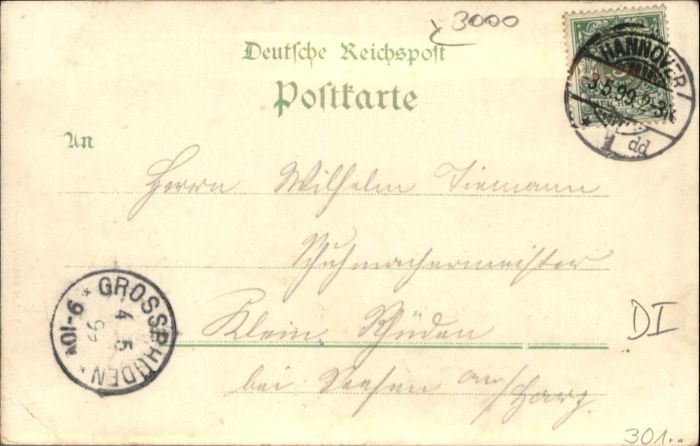 3000
Deutsche Reichspost
Postkarte
HANNOVER
3.5.99. 2-3N
1 dd
An
Herrn Wilhelm Tiemann
Schuhmachermeister
Klein Rhüden
bei Seesen am/Harz
GROSSRHÜDEN
4 5 99
9-10V
DI
301..